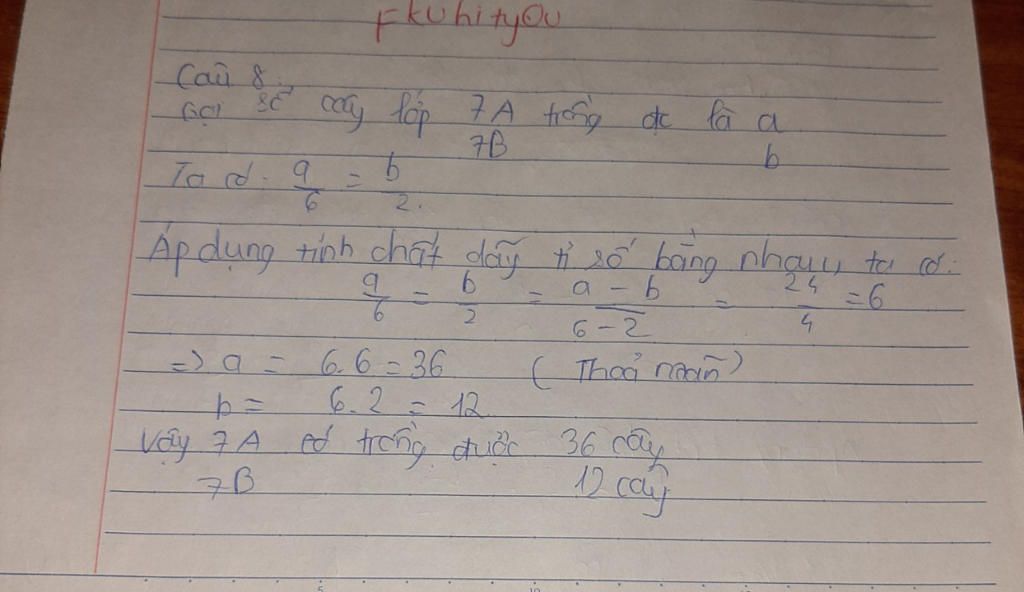 FkUhityOU
Câu 8.
Gọi số cây lớp 7A trồng đc là a
7B b
Ta có: a/6 = b/2.
Áp dụng tính chất dãy tỉ số bằng nhau, ta có:
a/6 = b/2 = a - b/6 - 2 = 24/4 = 6
=> a = 6.6 = 36 (Thoả mãn)
b = 6.2 = 12
Vậy 7A có trồng được 36 cây
7B 12 cây
5 10